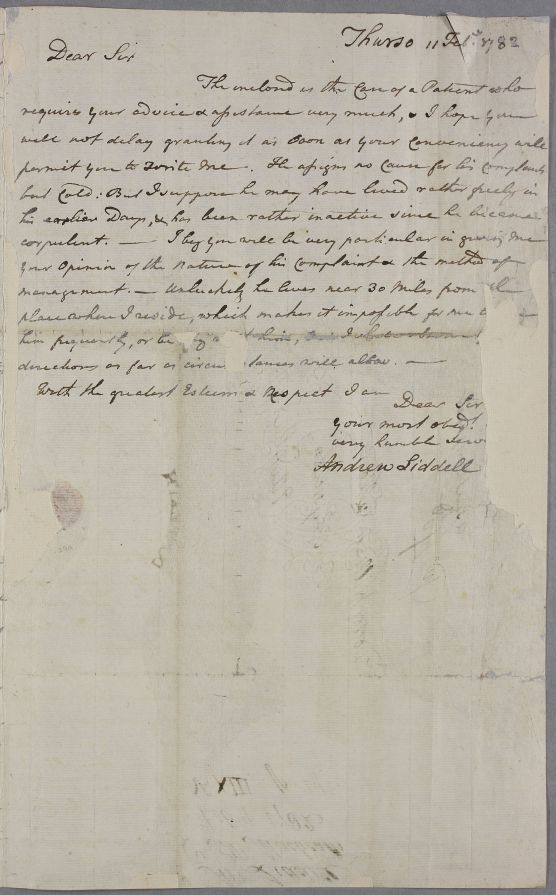 Thurso 11 Feb.y 1782
Dear Sir
The inclosed is the Case of a Patient who
requires your advice & assistance very much, & I hope you
will not delay granting it as soon as your conveniency will
permit you to write me. He assigns no Cause for his Complaints
but Cold. But I suppose he may have lived rather freely in
his earlier Days, & has been rather inactive since he became
corpulent. — I beg you will be very particular in giving me
your Opinion of the nature of his Complaint & the method of
management. — Unluckily he lives near 30 Miles from the
place where I reside, which makes it impossible for me
him frequently, or be him, I
directions as far as will allow. —
With the greatest Esteem & Respect I am
Dear Sir
your most obed.t
very humble
Andrew Liddell